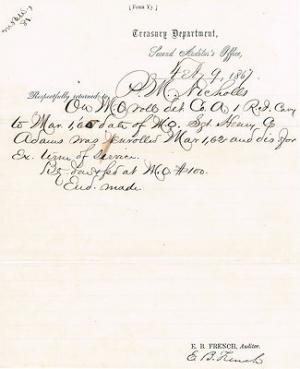 [ Form X ]
Treasury Department,
Second Auditor's Office,
Feb 9, 1867.
Respectfully returned to P. M. Nicholls
On M.O. rolls det Co. A, 1 R.I. Cav
to Mar 1, 65 date of M.O. Sgt Henry C.
Adams was enrolled Mar 1, 62 and dis for
Ex. term of Service.
at M.O. $100.
End. made.
E. B. FRENCH, Auditor.
E. B. French